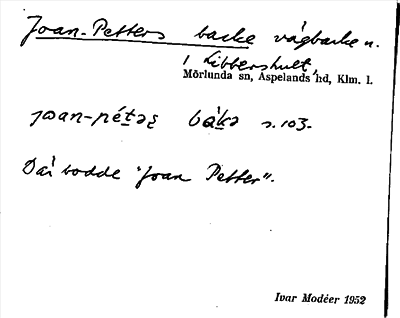 Joan-Petters backe vägbacke n.
i Libbershult,
Mörlunda sn, Aspelands hd, Klm. l.
joan-pétəʂ bákə s. 103.
Där bodde "Joan Petter".
Ivar Modéer 1952